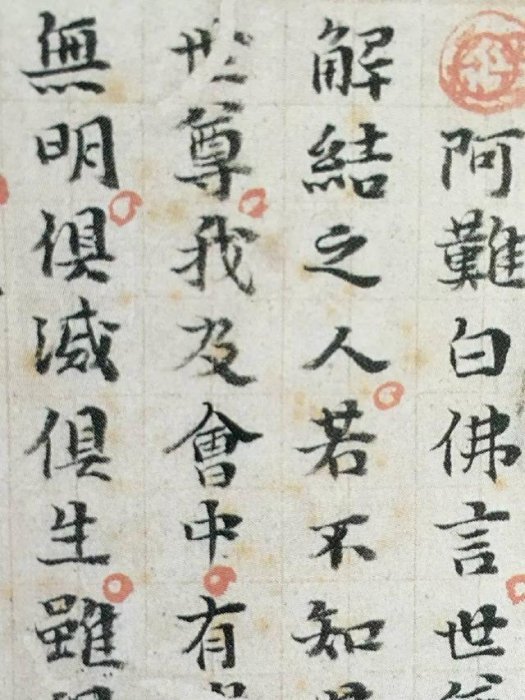 阿難白佛言世
解結之人若不知
世尊我及會中有
無明俱滅俱生雖